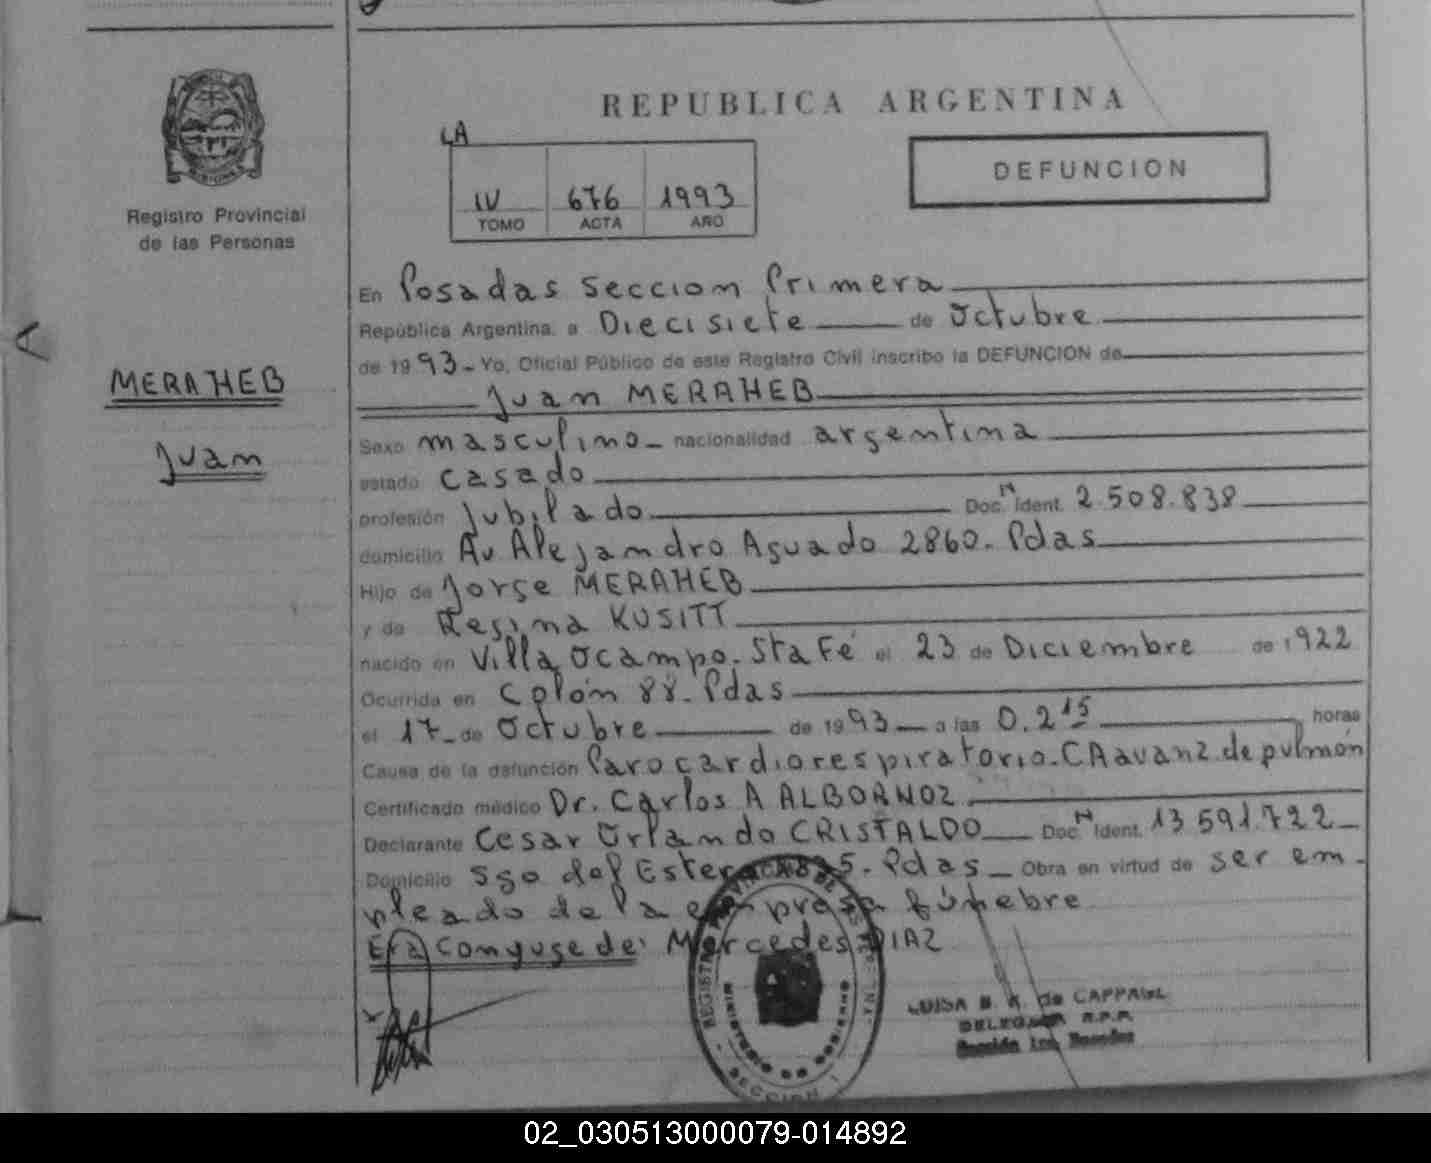 REPUBLICA ARGENTINA
LA
IV 676 1993
TOMO ACTA AÑO
DEFUNCION
MISIONES
Registro Provincial
de las Personas
MERAHEB
Juan
En Posadas Seccion Primera
República Argentina, a Diecisiete de Octubre
de 1993- Yo, Oficial Público de este Registro Civil inscribo la DEFUNCION de
Juan MERAHEB
Sexo masculino- nacionalidad argentina
estado casado
profesión Jubilado Doc. N Ident. 2.508.838
domicilio Av Alejandro Aguado 2860. Pdas
Hijo de Jorge MERAHEB
y de Regina KUSITT
nacido en Villa Ocampo. Sta Fé el 23 de Diciembre de 1922
Ocurrida en Colón 88- Pdas
el 17- de Octubre de 1993- a las 0.2 15 horas
Causa de la defunción Parocardiorespiratorio-CAavanz.de pulmón
Certificado médico Dr. Carlos A ALBORNOZ
Declarante Cesar Orlando CRISTALDO Doc. N Ident. 13 591.722-
Domicilio Sgo del Estero 5. Pdas- Obra en virtud de ser em-
pleado de la empresa fúnebre
Era conyuge de: Mercedes DIAZ
REGISTRO PROVINCIAL DE LAS
MINISTERIO DE GOBIERNO
SECCION 1
LUISA B. K. de CAPPA
DELEGADA R.P.P.
Sección 1ra. Posadas
02_030513000079-014892